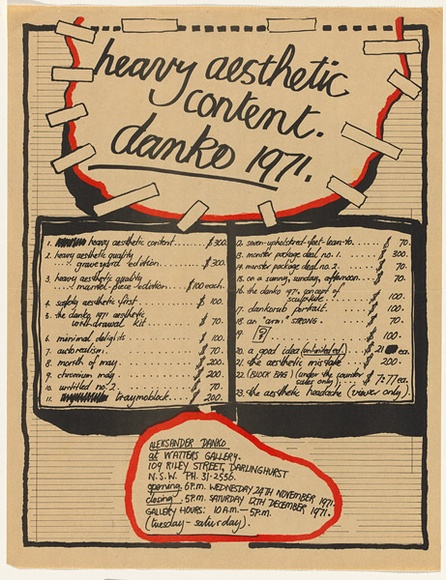 heavy aesthetic
content.
danko 1971.
1. heavy aesthetic content..... $ 300.
2. heavy aesthetic quality
graveyard edition..... $ 300.
3. heavy aesthetic quality
mantel-piece edition..... $ 100 each.
4. safety aesthetic first..... $ 100.
5. the danko 1971 aesthetic
withdrawal kit..... $ 70.
6. minimal delights..... $ 100.
7. acrorealism..... $ 70.
8. month of may..... $ 200.
9. chromium mdg..... $ 200.
10. untitled no. 2..... $ 70.
11. traymoblack..... $ 200.
12. seven-upholstered-feet-lean-to..... $ 70.
13. monster package deal no. 1..... $ 300.
14. monster package deal no. 2..... $ 70.
15. on a sunny, sunday, afternoon..... $ 70.
16. the danko 1971 concept of
sculpture..... $ 100.
17. dankorub portrait..... $ 100.
18. an "arm" STRONG..... $ 70.
19. ?..... $ 100.
20. a good idea (unlimited ed)..... $ 21 ea.
21. the aesthetic mistake..... 200.
22. (BLACK BAG) (under the counter
sales only)..... $ 7.77 ea.
23. the aesthetic headache (viewer only).
ALEKSANDER DANKO
at WATTERS GALLERY.
109 RILEY STREET, DARLINGHURST
N.S.W. PH. 31-2556.
opening, 6P.M. WEDNESDAY 24TH NOVEMBER 1971.
closing, 5P.M. SATURDAY 12TH DECEMBER 1971.
GALLERY HOURS: 10 A.M. — 5P.M.
(tuesday - saturday).